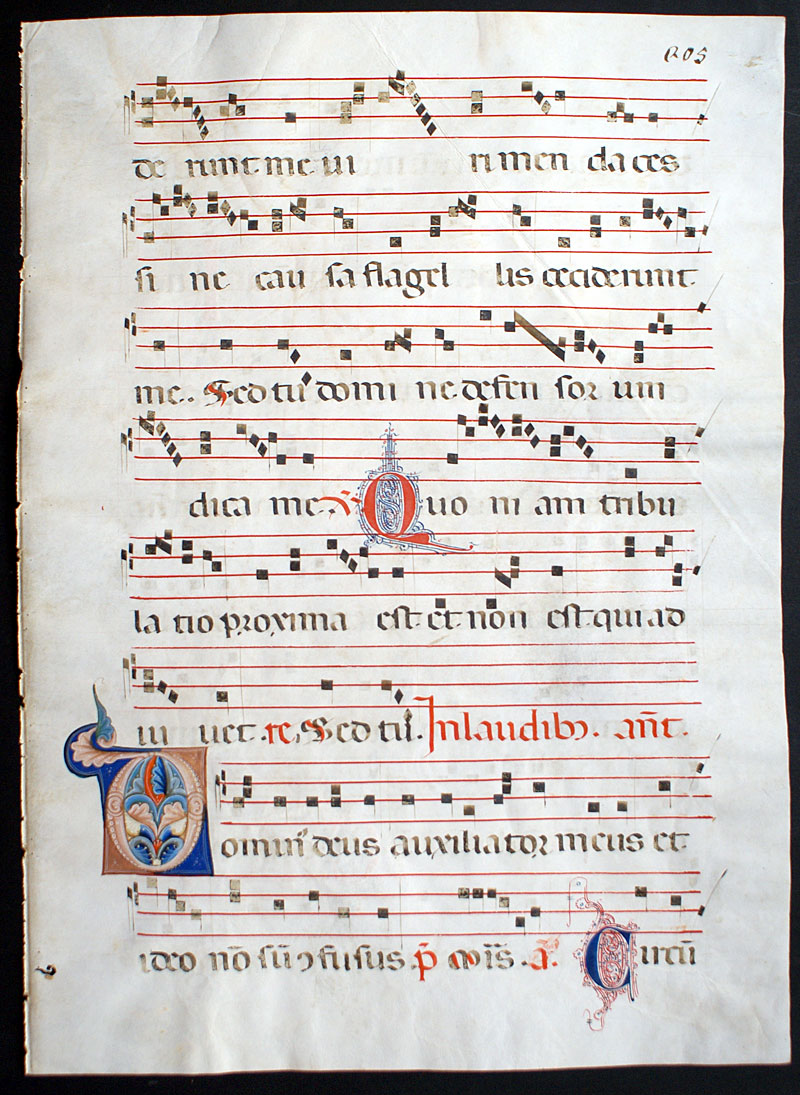 de runt me vi ri men da ces
si ne cau sa flagel lis ceciderunt
me. Sed tu domi ne defen sor vin
dica me. Quo ni am tribu
la tio proxima est et non est qui ad
iu vet. re. Sed tu. In laudib3. añt.
omin9 deus auxiliator meus et
ideo nō sū ɔfusus. p̄ A. Circū